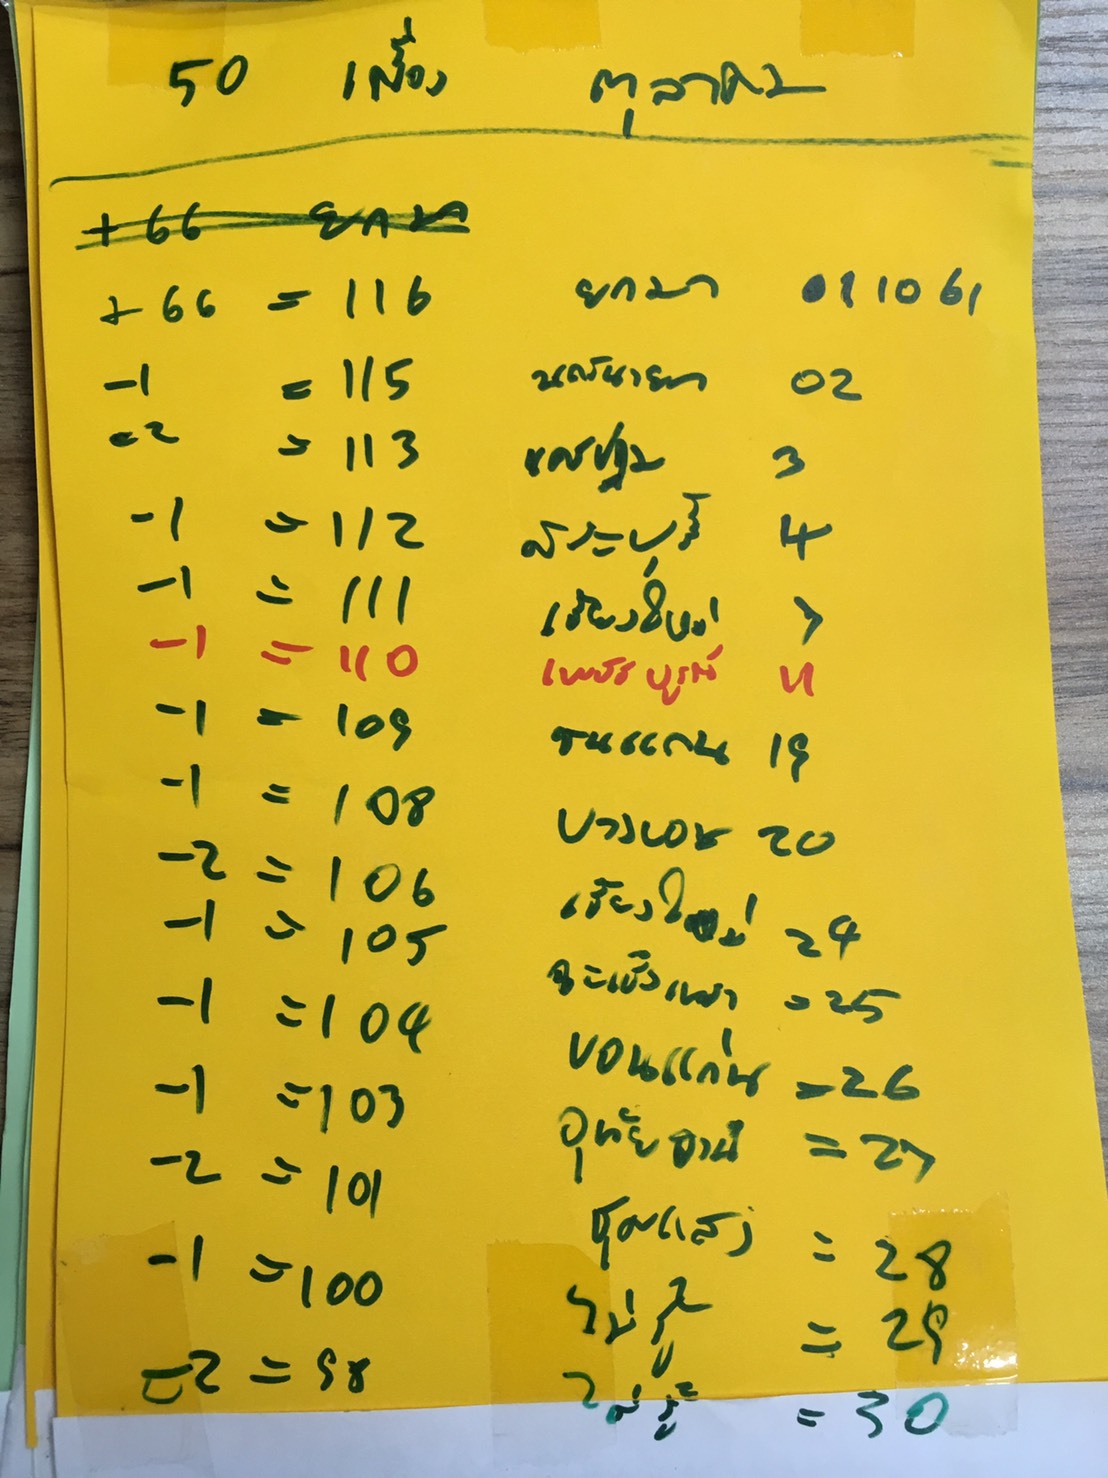 50 เฟื่อง ตุลาคม
+66 ยกมา
+66 = 116 ยกมา 011061
-1 = 115 นครนายก 02
-2 = 113 นครปฐม 3
-1 = 112 สระบุรี 4
-1 = 111 เชียงใหม่ 7
-1 = 110 เพชรบูรณ์ 11
-1 = 109 ขนแกน 19
-1 = 108 บางเขน 20
-2 = 106 เชียงใหม่ 24
-1 = 105 ฉะเชิงเทรา = 25
-1 = 104 ขอนแก่น = 26
-1 = 103 อุทัยธานี = 27
-2 = 101 ชุมแสง = 28
-1 = 100 ไม่รู้ = 29
-2 = 98 = 30